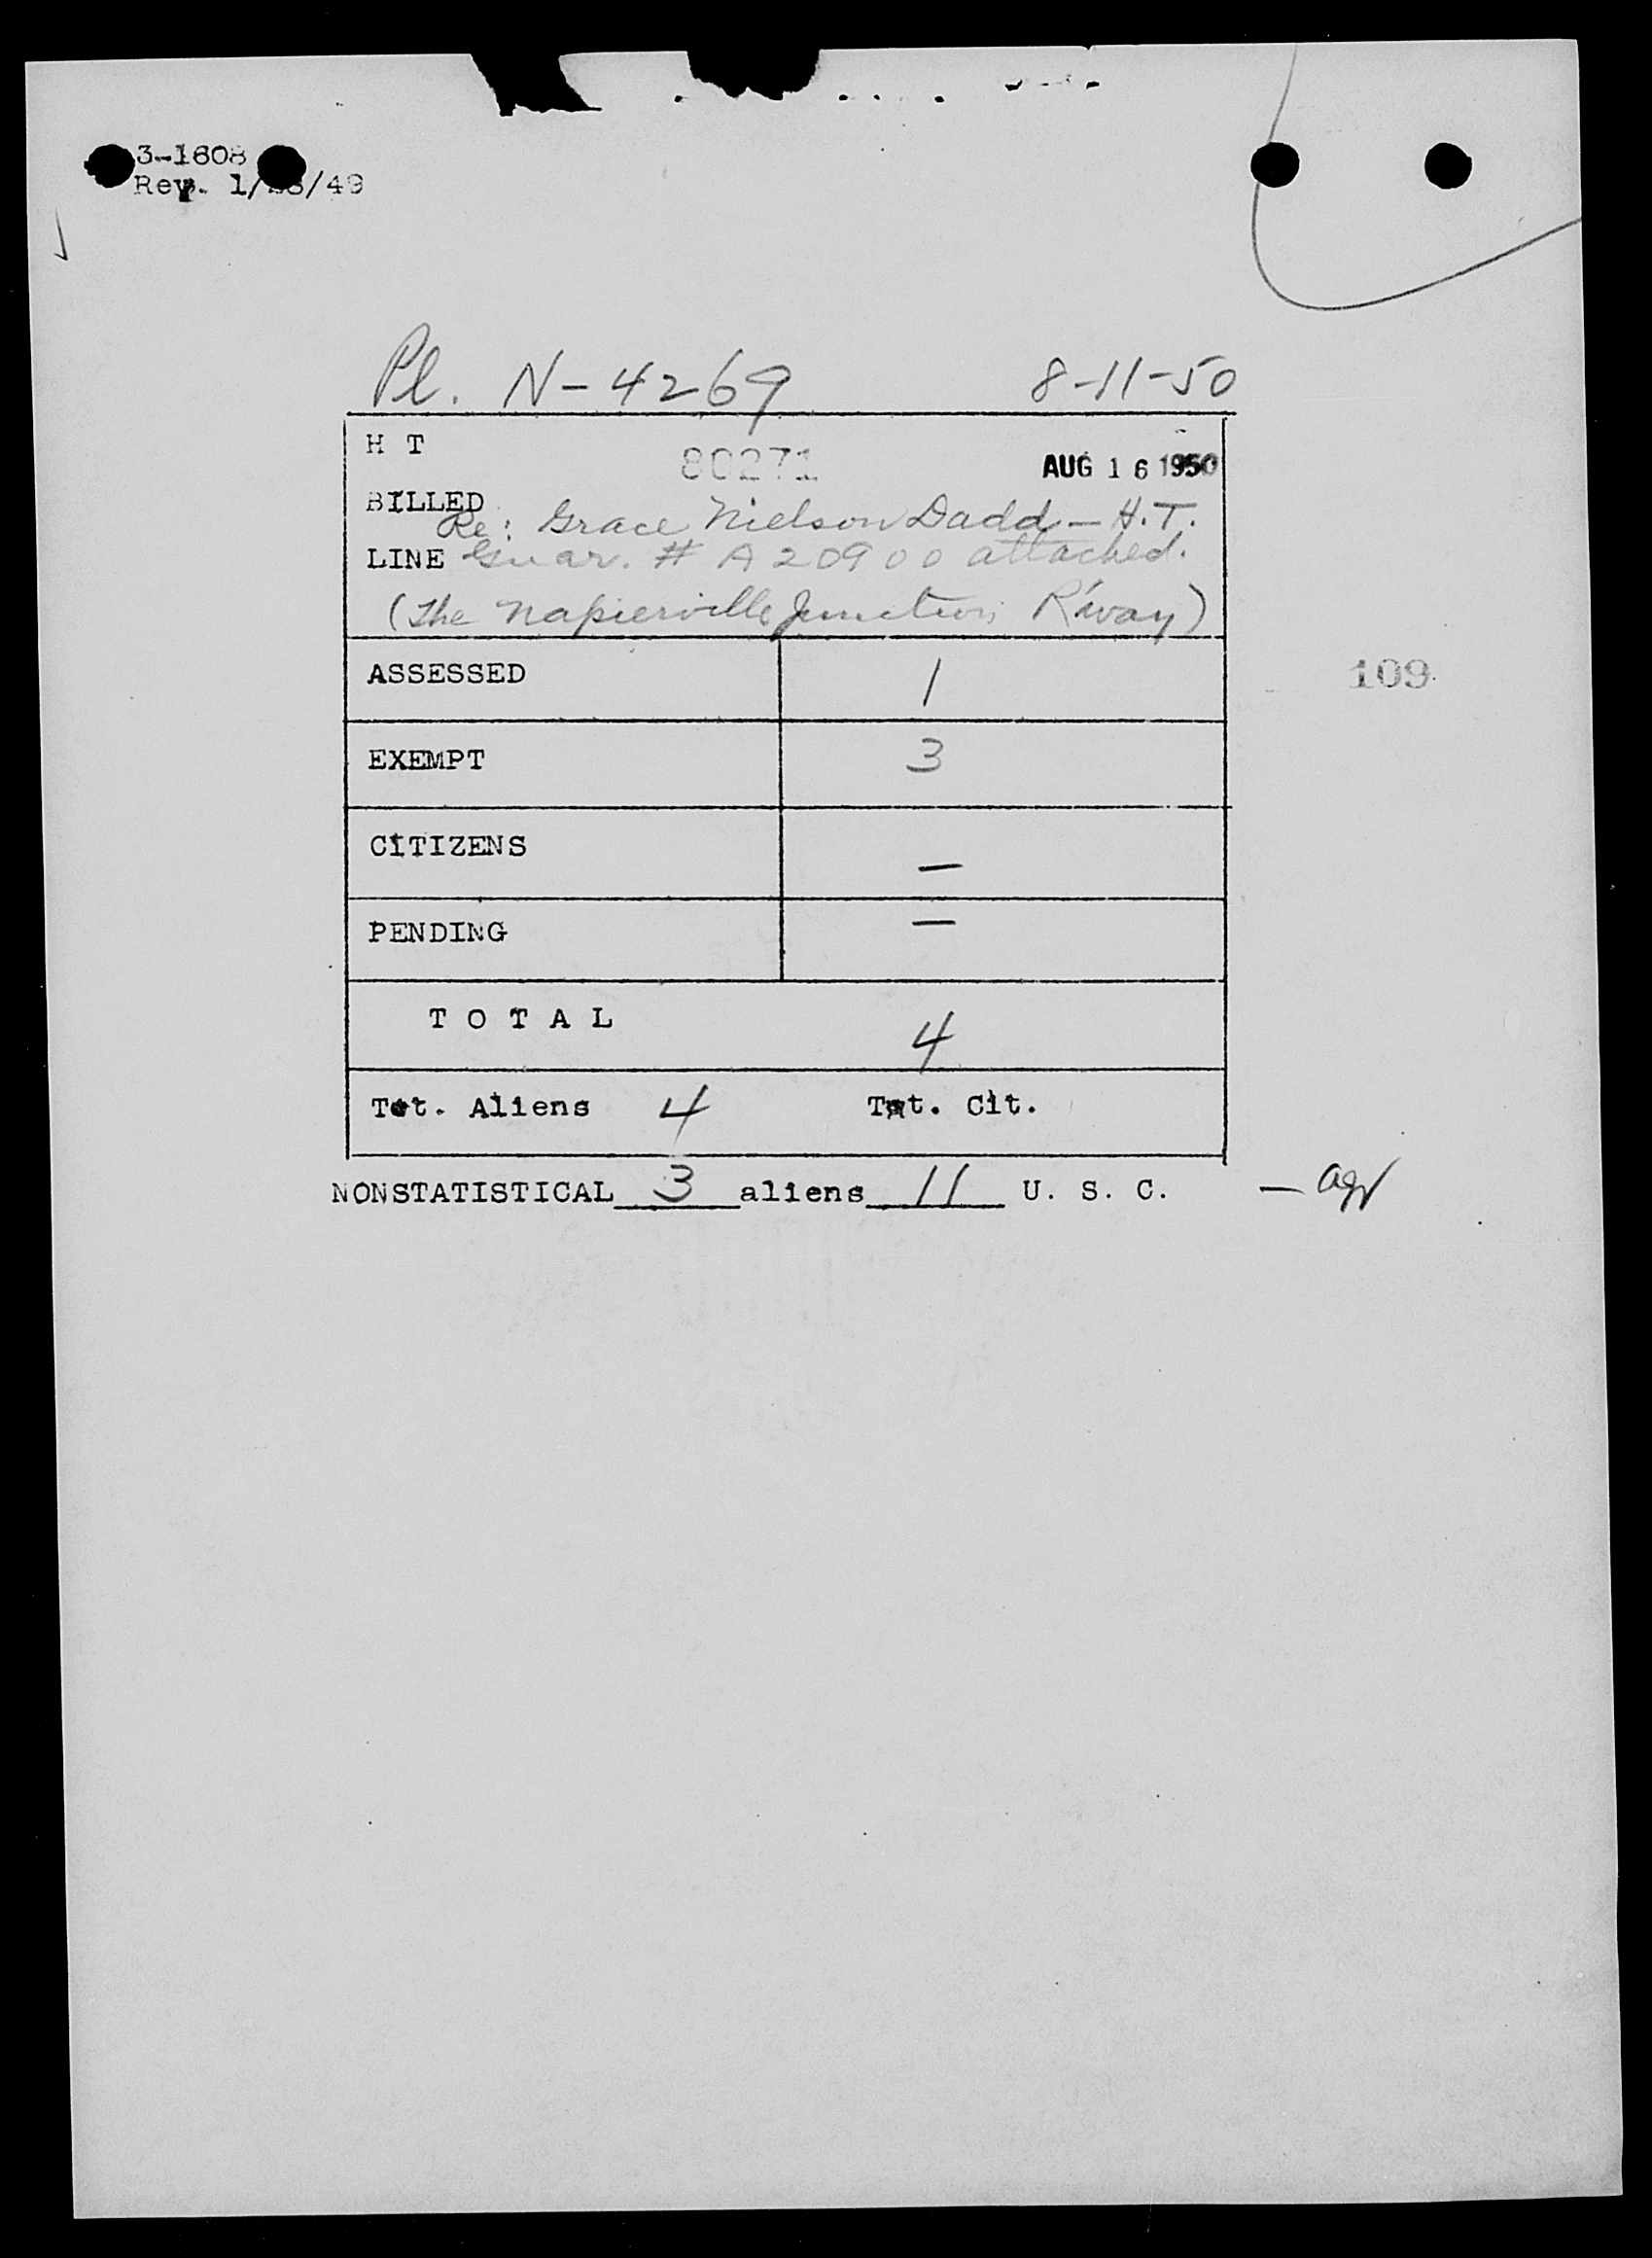 3-1608
Rev. 1/28/49
Pl. N-4269 8-11-50
H T 80271 AUG 16 1950
BILLED
Re: Grace Nielson Dadd - H.T.
LINE Guar. # A20900 attached.
(The Napierville Junction R'way)
ASSESSED 1
109
EXEMPT 3
CITIZENS —
PENDING —
T O T A L 4
Tot. Aliens 4 Tot. Cit.
NONSTATISTICAL 3 aliens 11 U. S. C. —